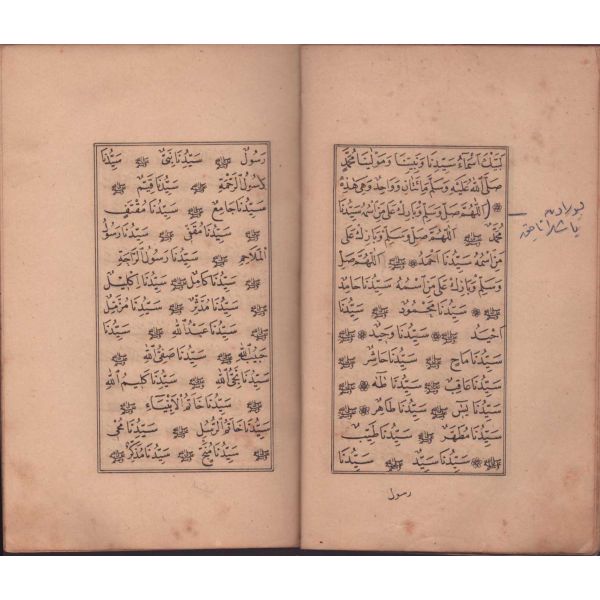 لبيك اسماء سيدنا ونبينا ومولينا محمد
صلى الله عليه وسلم مائتان وواحد وهى هذه
اللهم صل وسلم وبارك على من اسمه سيدنا
محمد ﷺ اللهم صل وسلم وبارك على
من اسمه سيدنا احمد ﷺ اللهم صل
وسلم وبارك على من اسمه سيدنا حامد
ﷺ سيدنا محمود ﷺ سيدنا
احيد ﷺ سيدنا وحيد ﷺ
سيدنا ماح ﷺ سيدنا حاشر ﷺ
سيدنا عاقب ﷺ سيدنا طه ﷺ
سيدنا يس ﷺ سيدنا طاهر ﷺ
سيدنا مطهر ﷺ سيدنا طيب
ﷺ سيدنا سيد ﷺ سيدنا
رسول
بورادن
رسول ﷺ سيدنا نبى ﷺ سيدنا
رسول الرحمة ﷺ سيدنا قيم ﷺ
سيدنا جامع ﷺ سيدنا مقتف
ﷺ سيدنا مقفى ﷺ سيدنا رسول
الملاحم ﷺ سيدنا رسول الراحة
ﷺ سيدنا كامل ﷺ سيدنا اكليل
ﷺ سيدنا مدثر ﷺ سيدنا مزمل
ﷺ سيدنا عبد الله ﷺ سيدنا
حبيب الله ﷺ سيدنا صفى الله ﷺ
سيدنا نجى الله ﷺ سيدنا كليم الله
ﷺ سيدنا خاتم الانبياء ﷺ
سيدنا خاتم الرسل ﷺ سيدنا محى
ﷺ سيدنا منج ﷺ سيدنا مذكر ﷺ